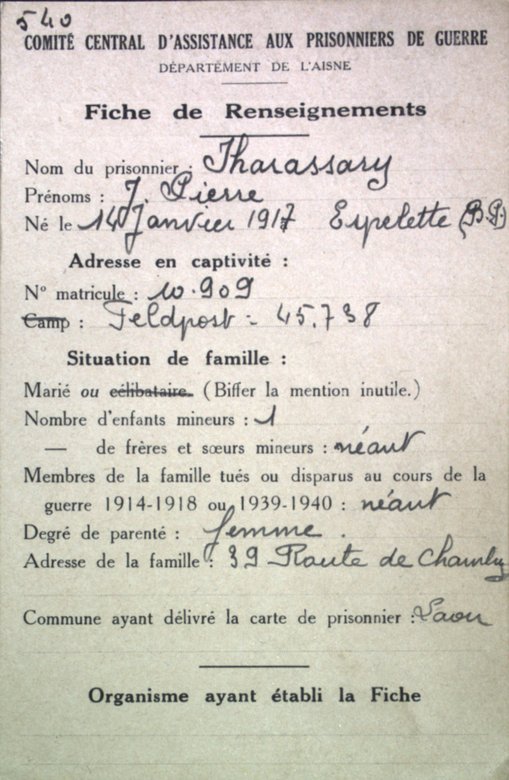 540
COMITÉ CENTRAL D'ASSISTANCE AUX PRISONNIERS DE GUERRE
DÉPARTEMENT DE L'AISNE
Fiche de Renseignements
Nom du prisonnier : Tharassary
Prénoms : J. Pierre
Né le 14 Janvier 1917 Espelette (B.P.)
Adresse en captivité :
N° matricule : 10.909
Camp : Feldpost = 45.738
Situation de famille :
Marié ou célibataire. (Biffer la mention inutile.)
Nombre d'enfants mineurs : 1
— de frères et sœurs mineurs : néant
Membres de la famille tués ou disparus au cours de la
guerre 1914-1918 ou 1939-1940 : néant
Degré de parenté : femme.
Adresse de la famille : 39 Route de Chambly
Commune ayant délivré la carte de prisonnier : Laon
Organisme ayant établi la Fiche